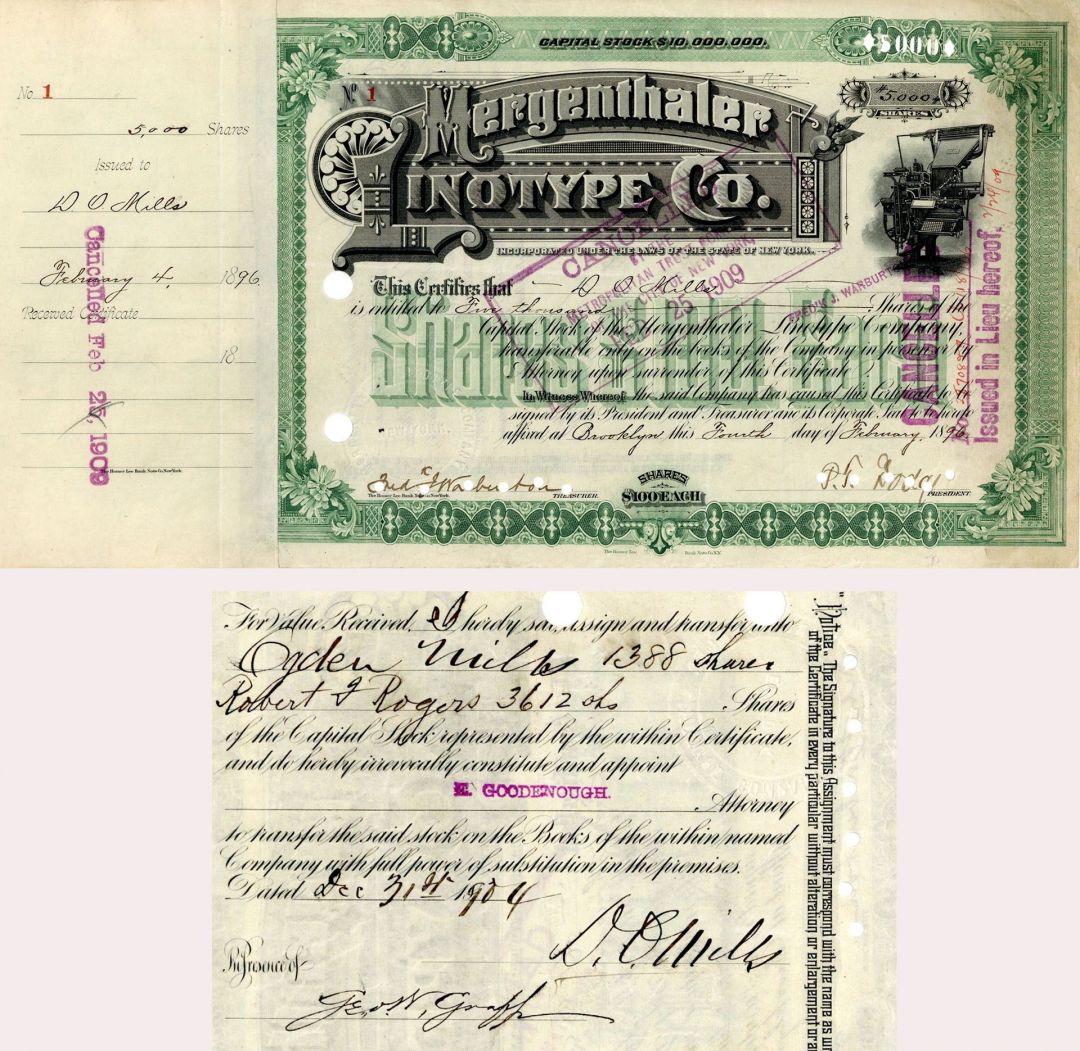 No. 1
5,000 Shares
Issued to
D O Mills
February 4, 1896
Received Certificate
18
Cancelled Feb 25, 1909
The Homer Lee Bank Note Co. New York.
CAPITAL STOCK $10,000,000.
5000
No 1
$5,000
SHARES
Mergenthaler
LINOTYPE CO.
INCORPORATED UNDER THE LAWS OF THE STATE OF NEW YORK.
This Certifies that D O Mills
is entitled to Five thousand Shares of the
Capital Stock of the Mergenthaler Linotype Company,
transferable only on the books of the Company in person or by
Attorney upon surrender of this Certificate.
In Witness Whereof the said Company has caused this Certificate to be
signed by its President and Treasurer and its Corporate Seal to be hereto
affixed at Brooklyn this Fourth day of February, 1896
CANCELLED
METROPOLITAN TRUST
CITY OF NEW YORK
FEB 25 1909
FRED'K J. WARBURTON
CANCELLED
Issued in Lieu hereof.
2/24/09
Fred'k J Warburton
TREASURER.
SHARES
$100 EACH
P. T. Dodge
PRESIDENT
The Homer Lee Bank Note Co. New York.
The Homer Lee Bank Note Co. N.Y.
For Value Received, I hereby sell, assign and transfer unto
Ogden Mills 1388 shares
Robert J Rogers 3612 shs Shares
of the Capital Stock represented by the within Certificate,
and do hereby irrevocably constitute and appoint
E. GOODENOUGH.
Attorney
to transfer the said stock on the Books of the within named
Company with full power of substitution in the premises.
Dated Dec 31st 1904
D. O. Mills
In Presence of
Geo. W. Graff
Notice. The Signature to this Assignment must correspond with the name as
of the Certificate in every particular without alteration or enlargement or